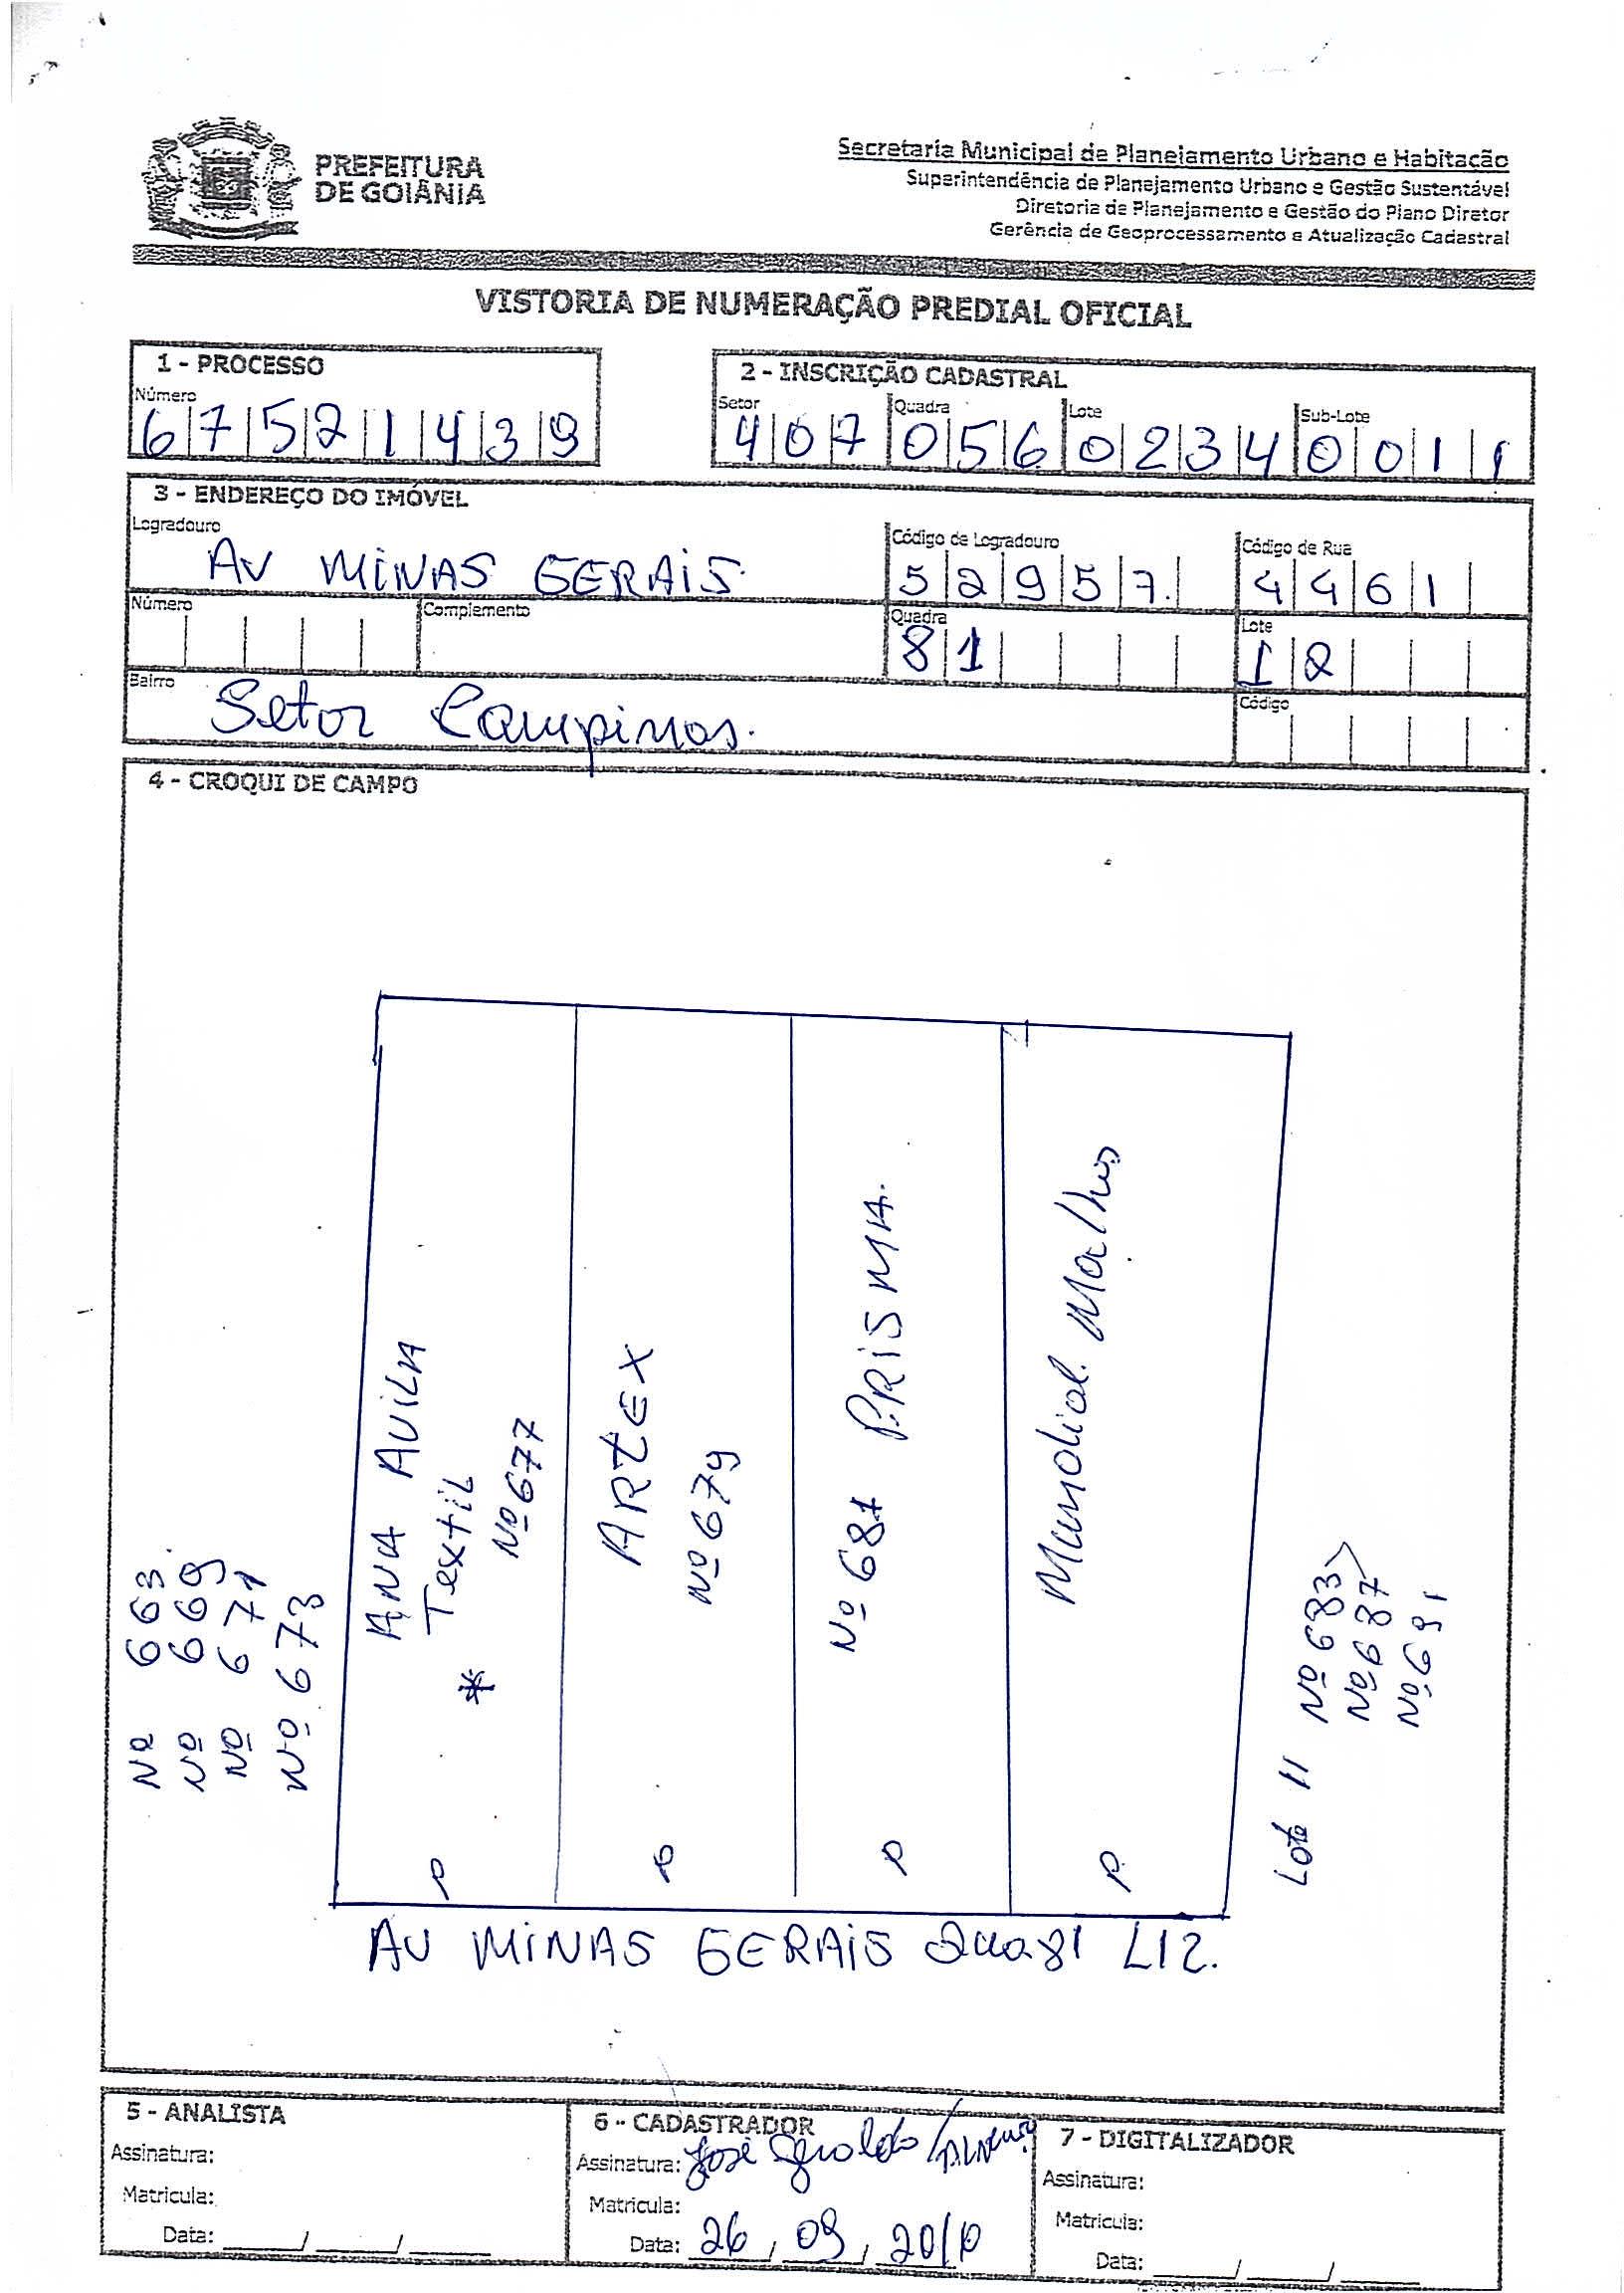 PREFEITURA
DE GOIÂNIA
Secretaria Municipal de Planejamento Urbano e Habitação
Superintendência de Planejamento Urbano e Gestão Sustentável
Diretoria de Planejamento e Gestão do Plano Diretor
Gerência de Geoprocessamento e Atualização Cadastral
VISTORIA DE NUMERAÇÃO PREDIAL OFICIAL
1 - PROCESSO
Número
6 7 5 2 1 4 3 9
2 - INSCRIÇÃO CADASTRAL
Setor Quadra Lote Sub-Lote
4 0 7 0 5 6 0 2 3 4 0 0 1 1
3 - ENDEREÇO DO IMÓVEL
Logradouro Código de Logradouro Código de Rua
AV MINAS GERAIS. 5 2 9 5 7. 4 4 6 1
Número Complemento Quadra Lote
8 1 1 2
Bairro Código
Setor Campinas.
4 - CROQUI DE CAMPO
Nº 663.
Nº 669
Nº 671
Nº 673
ANA AVILA
Textil
Nº 677
*
P
ARTEX
Nº 679
P
Nº 681 PRISMA.
P
Mundial Malhas
P.
Lote 11 Nº 683
Nº 687
Nº 691
AV MINAS GERAIS Qua 81 L12.
5 - ANALISTA
Assinatura:
Matricula:
Data: ____/____/____
6 - CADASTRADOR
Assinatura: José
Matricula:
Data: 26 / 09 /
7 - DIGITALIZADOR
Assinatura:
Matricula:
Data: ____/____/____